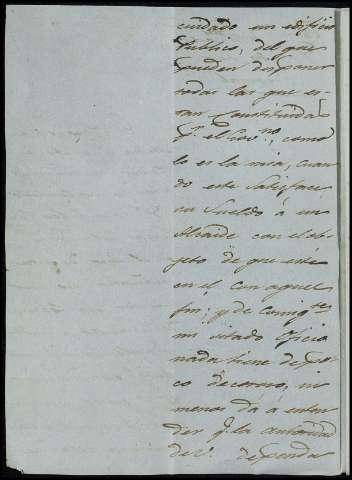 cuidado un edificio
Publico, del que
pueden disponer
todas las que es-
tan Constituidas
p.r el Gov.no, como
lo es la mia, cuan
do este Satisface
un Sueldo á un
Alcaide con el ob-
jeto de que esté
en el con aquel
fin; y de consig.tes
mi citado Oficio
nada tiene de po-
co decoroso, ni
menos dá á enten
der q.e la autoridad
de V. dependa